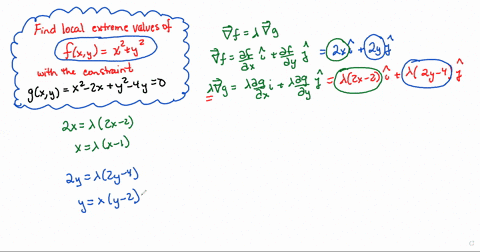 Find local extreme values of
f(x,y) = x² + y²
with the constraint
g(x,y) = x² - 2x + y² - 4y = 0
∇⃗f = λ ∇⃗g
∇⃗f = ∂f/∂x î + ∂f/∂y ĵ = 2x î + 2y ĵ
λ∇⃗g = λ∂g/∂x î + λ∂g/∂y ĵ = λ(2x-2) î + λ(2y-4 ĵ
2x = λ(2x-2)
x = λ(x-1)
2y = λ(2y-4)
y = λ(y-2)